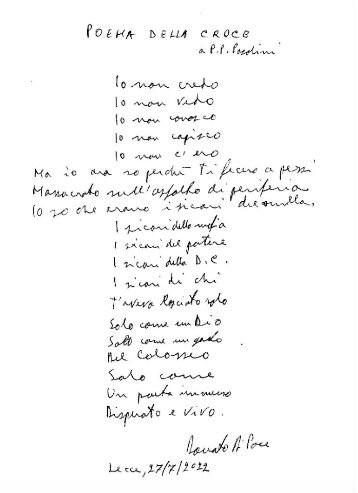 POEMA DELLA CROCE
a P.P. Pasolini
Io non credo
Io non vedo
Io non conosco
Io non capisco
Io non c'ero
Ma io ora so perché ti fecero a pezzi
Massacrato sull'asfalto di periferia
Io so che erano i sicari del nulla.
I sicari della mafia
I sicari del potere
I sicari della D.C.
I sicari di chi
T'aveva lasciato solo
Solo come un Dio
Solo come un gatto
Nel Colosseo
Solo come
Un poeta immenso
Disperato e vivo.
Donato Di Poce
Lecce, 27/7/2022